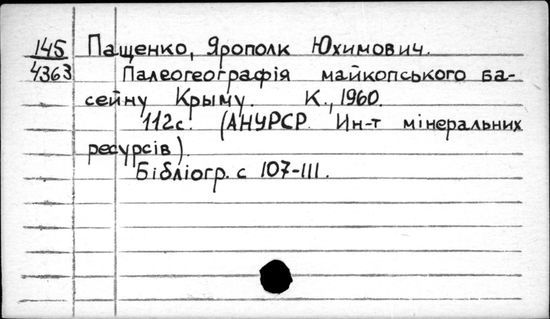 145 Пащенко, Ярополк Юхимович.
4363 Палеогеографія майкопського ба-
сейну Крыму. К., 1960.
112с. (АНУРСР. Ин-т мінеральних
ресурсів).
Бібліогр. с 107-111.